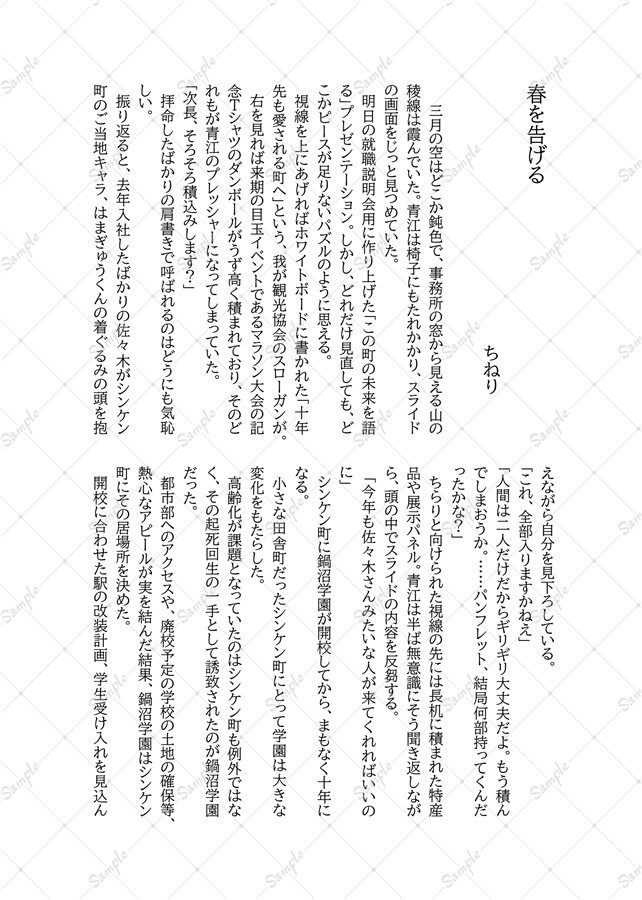 春を告げる
ちねり
三月の空はどこか鈍色で、事務所の窓から見える山の
稜線は霞んでいた。青江は椅子にもたれかかり、スライド
の画面をじっと見つめていた。
明日の就職説明会用に作り上げた「この町の未来を語
る」プレゼンテーション。しかし、どれだけ見直しても、ど
こかピースが足りないパズルのように思える。
視線を上にあげればホワイトボードに書かれた「十年
先も愛される町へ」という、我が観光協会のスローガンが。
右を見れば来期の目玉イベントであるマラソン大会の記
念Tシャツのダンボールがうず高く積まれており、そのど
れもが青江のプレッシャーになってしまっていた。
「次長、そろそろ積込みします？」
拝命したばかりの肩書きで呼ばれるのはどうにも気恥
しい。
振り返ると、去年入社したばかりの佐々木がシンケン
町のご当地キャラ、はまぎゅうくんの着ぐるみの頭を抱
えながら自分を見下ろしている。
「これ、全部入りますかねえ」
「人間は二人だけだからギリギリ大丈夫だよ。もう積ん
でしまおうか。……パンフレット、結局何部持ってくんだ
ったかな？」
ちらりと向けられた視線の先には長机に積まれた特産
品や展示パネル。青江は半ば無意識にそう聞き返しなが
ら、頭の中でスライドの内容を反芻する。
「今年も佐々木さんみたいな人が来てくれればいいの
に」
シンケン町に鍋沼学園が開校してから、まもなく十年に
なる。
小さな田舎町だったシンケン町にとって学園は大きな
変化をもたらした。
高齢化が課題となっていたのはシンケン町も例外ではな
く、その起死回生の一手として誘致されたのが鍋沼学園
だった。
都市部へのアクセスや、廃校予定の学校の土地の確保等、
熱心なアピールが実を結んだ結果、鍋沼学園はシンケン
町にその居場所を決めた。
開校に合わせた駅の改装計画、学生受け入れを見込ん
Sample